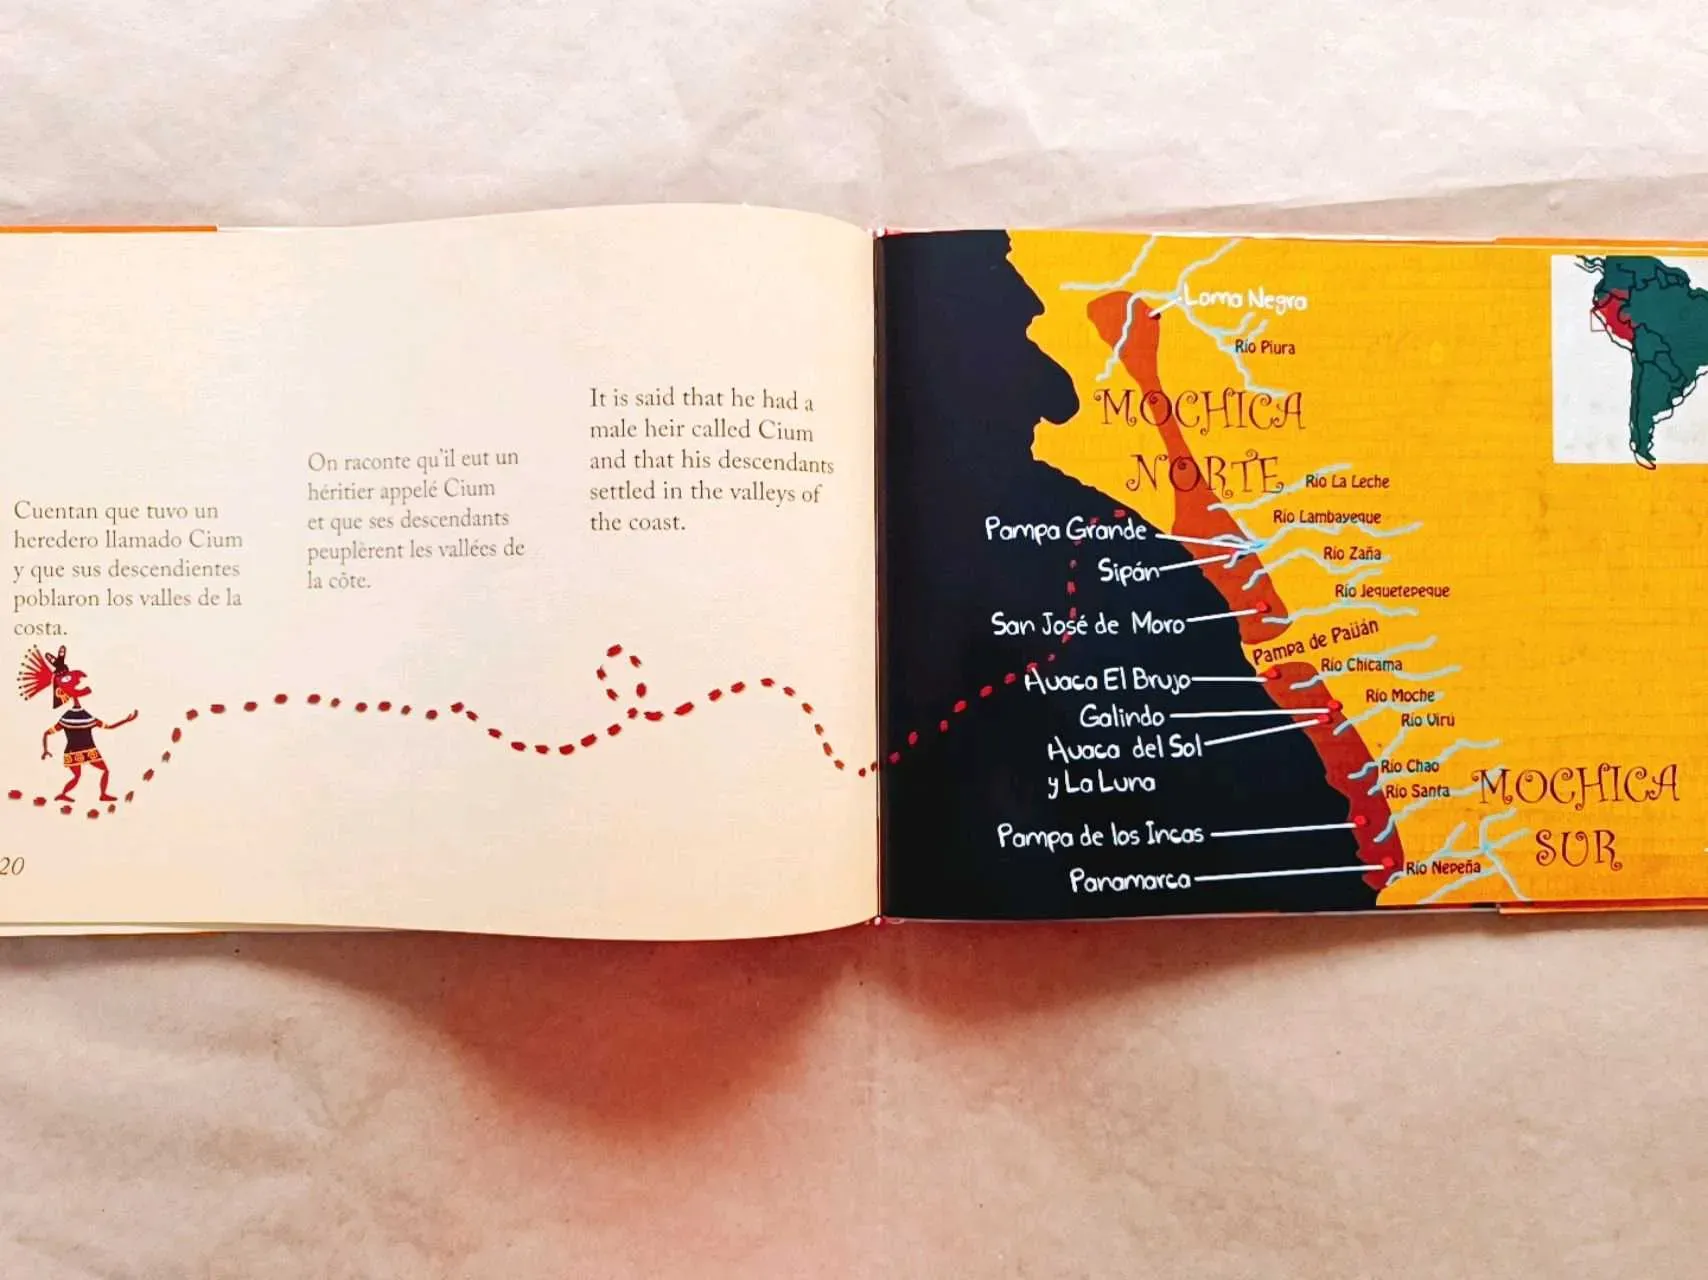 Cuentan que tuvo un
heredero llamado Cium
y que sus descendientes
poblaron los valles de la
costa.
On raconte qu'il eut un
héritier appelé Cium
et que ses descendants
peuplèrent les vallées de
la côte.
It is said that he had a
male heir called Cium
and that his descendants
settled in the valleys of
the coast.
20
Loma Negra
Río Piura
MOCHICA
NORTE
Río La Leche
Río Lambayeque
Pampa Grande
Río Zaña
Sipán
Río Jequetepeque
San José de Moro
Pampa de Paiján
Río Chicama
Huaca El Brujo
Río Moche
Galindo
Río Virú
Huaca del Sol
y La Luna
Río Chao
MOCHICA
SUR
Río Santa
Pampa de los Incas
Río Nepeña
Panamarca